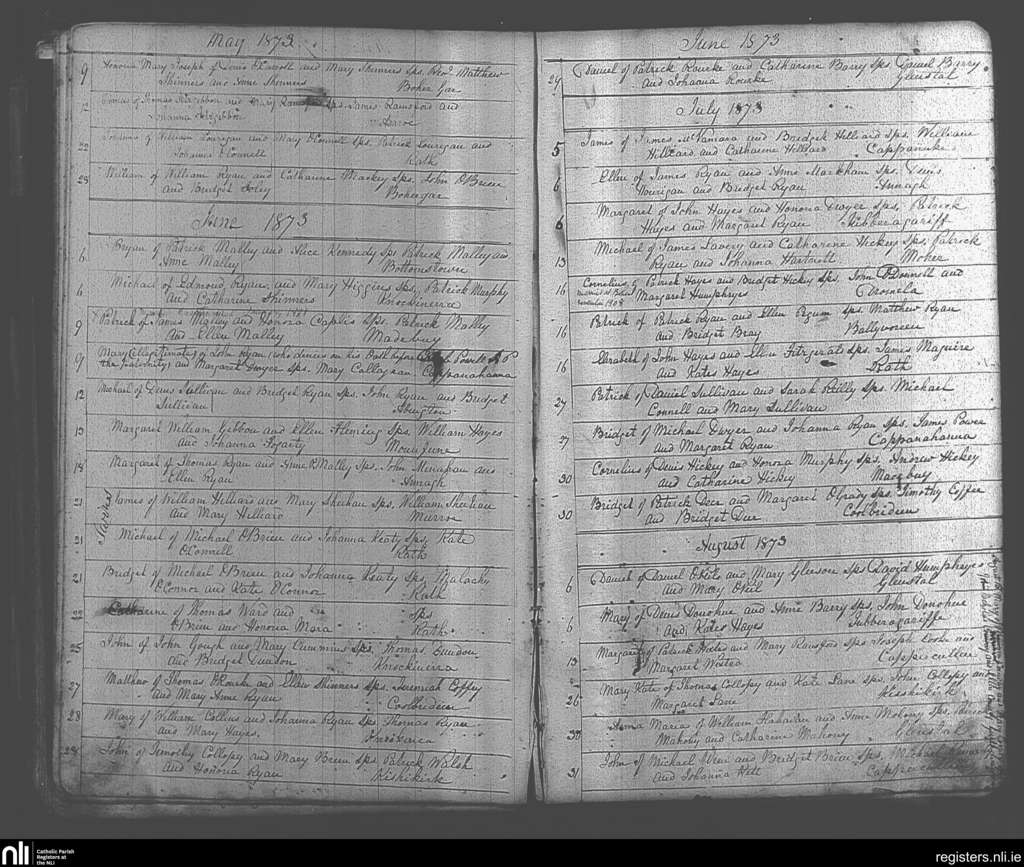 May 1873
9 Honoria Mary Joseph of Denis O'Connell and Mary Skinners Sps. Revd. Matthew
Skinners and Anne Skinners Boher Gar
12 Thomas of Thomas Fitzgibbon and Mary Sps. James Ransford and
Johanna Fitzgibbon
22 Johanna of William Hourigan and Mary O'Connell Sps. Patrick Hourigan and
Johanna O'Connell Rath
23 William of William Ryan and Catharine Mackey Sps. John O'Brien
and Bridget Foley Bohergar
June 1873
6 Bryan of Patrick Malley and Alice Kennedy Sps Patrick Malley and
Anne Malley Bottomstown
6 Michael of Edmond Ryan and Mary Higgins Sps. Patrick Murphy
and Catharine Skinners Knockinerra
9 Patrick of James Malley and Honora Caplis Sps. Patrick Malley
and Ellen Malley Madebuy
9 Mary (illegitimate) of John Ryan (who denies on his Oath before
the paternity) and Margaret Dwyer Sps. Mary Callaghan Cappanahanna
12 Michael of Denis Sullivan and Bridget Ryan Sps. John Ryan and Bridget
Sullivan Abington
13 Margaret William Gibbon and Ellen Fleming Sps. William Hayes
and Johanna Fogarty Mountjune
18 Margaret of Thomas Ryan and Anne O'Mally Sps. John Minahan and
Ellen Ryan Annagh
21 James of William Hilliard and Mary Sheehan Sps. William Sheehan
and Mary Hilliard Murroe
21 Michael of Michael O'Brien and Johanna Keaty Sps. Kate
O'Connell Rath
21 Bridget of Michael O'Brien and Johanna Keaty Sps. Malachy
O'Connor and Kate O'Connor Rath
22 Catharine of Thomas Ward and Sps
O'Brien and Honoria Mara Rath
25 John of John Gough and Mary Cummins Sps. Thomas
and Bridget Knockinerra
27 Matthew of Thomas O'Rourke and Ellen Skinners Sps. Jeremiah Coffey
and Mary Anne Ryan Coolbideen
28 Mary of William Collins and Johanna Ryan Sps Thomas Ryan
and Mary Hayes.
28 John of Timothy Collopy and Mary Brien Sps Patrick Walsh
and Honoria Ryan Kishikirk
June 1873
24 Daniel of Patrick Rourke and Catharine Barry Sps. Daniel Barry
and Johanna Rourke Glenstal
July 1873
5 James of James McNamara and Bridget Hilliard Sps. William
Hilliard and Catharine Hilliard Cappanuke
6 Ellen of James Ryan and Anne Markham Sps. Denis
Hourigan and Bridget Ryan Annagh
6 Margaret of John Hayes and Honora Dwyer Sps. Patrick
Hayes and Margaret Ryan Tubberagariff
13 Michael of James Lavery and Catharine Hickey Sps. Patrick
Ryan and Johanna Hartnett Moher
16 Cornelius of Patrick Hayes and Bridget Hickey Sps. John O'Donnell and
Margaret Humphreys Dromela
16 Patrick of Patrick Ryan and Ellen Sps. Matthew Ryan
and Bridget Bray Ballyvoreen
16 Elizabeth of John Hayes and Ellen Fitzgerald Sps. James Maguire
and Kates Hayes Rath
27 Patrick of Daniel Sullivan and Sarah Reilly Sps Michael
Connell and Mary Sullivan
27 Bridget of Michael Dwyer and Johanna Ryan Sps. James Power
and Margaret Ryan Cappanahanna
30 Cornelius of Denis Hickey and Honora Murphy Sps. Andrew Hickey
and Catharine Hickey Madebuy
30 Bridget of Patrick Deer and Margaret O'Grady Sps. Timothy Coffee
and Bridget Coolbideen
August 1873
6 Daniel of Daniel O'Neil and Mary Gleeson Sps David Humphreys
and Mary O'Neil Glenstal
6 Mary of Denis Donohue and Anne Barry Sps. John Donohue
and Kates Hayes Tubberagariffe
13 Margaret of Patrick and Mary Ransford Sps. Joseph and
Margaret Cappercullen
26 Mary Kate of Thomas Collopy and Kate Lane Sps. John Collopy and
Margaret Lane Kisshikirk
30 Anna Maria of William Hanavan and Anne Mahony Sps.
Mahony and Catharine Mahony Glenstal
31 John of Michael and Bridget Brien Sps. Michael
and Johanna
nli Catholic Parish
Registers at
the NLI
registers.nli.ie